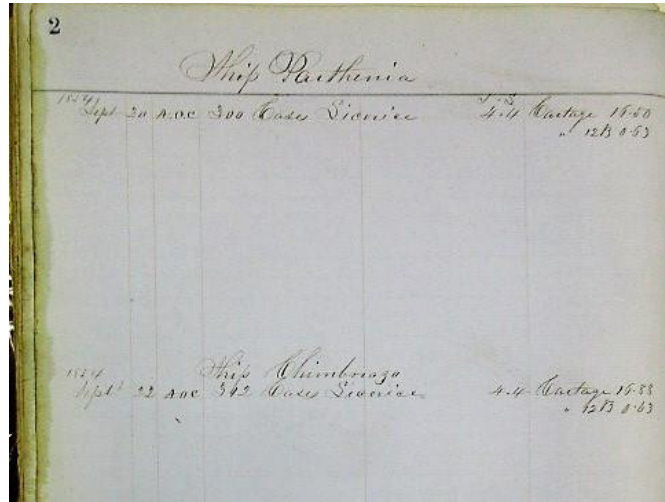 2
Ship Parthenia
1854
Sept 20 A.O.C 300 Cases Licorice 4.4 Cartage 16.50
" 12B 0.63
1854
Ship Chimborazo
Sept 22 A.O.C 342 Cases Licorice 4.4 Cartage
" 12B 0.63